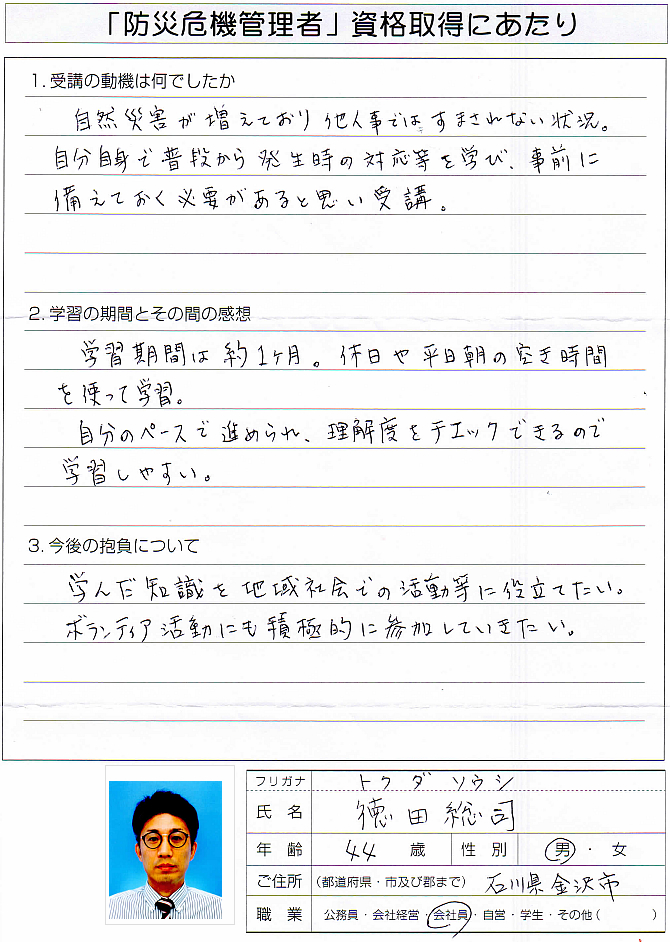 「防災危機管理者」資格取得にあたり
1. 受講の動機は何でしたか
自然災害が増えており他人事ではすまされない状況。
自分自身で普段から発生時の対応等を学び、事前に
備えておく必要があると思い受講。
2. 学習の期間とその間の感想
学習期間は約1ヶ月。休日や平日朝の空き時間
を使って学習。
自分のペースで進められ、理解度をチェックできるので
学習しやすい。
3. 今後の抱負について
学んだ知識を地域社会での活動等に役立てたい。
ボランティア活動にも積極的に参加していきたい。
フリガナ トクダ ソウシ
氏 名 徳田 総司
年 齢 44 歳 性 別 男 ・ 女
ご住所 (都道府県・市及び郡まで) 石川県金沢市
職 業 公務員・会社経営・会社員・自営・学生・その他( )